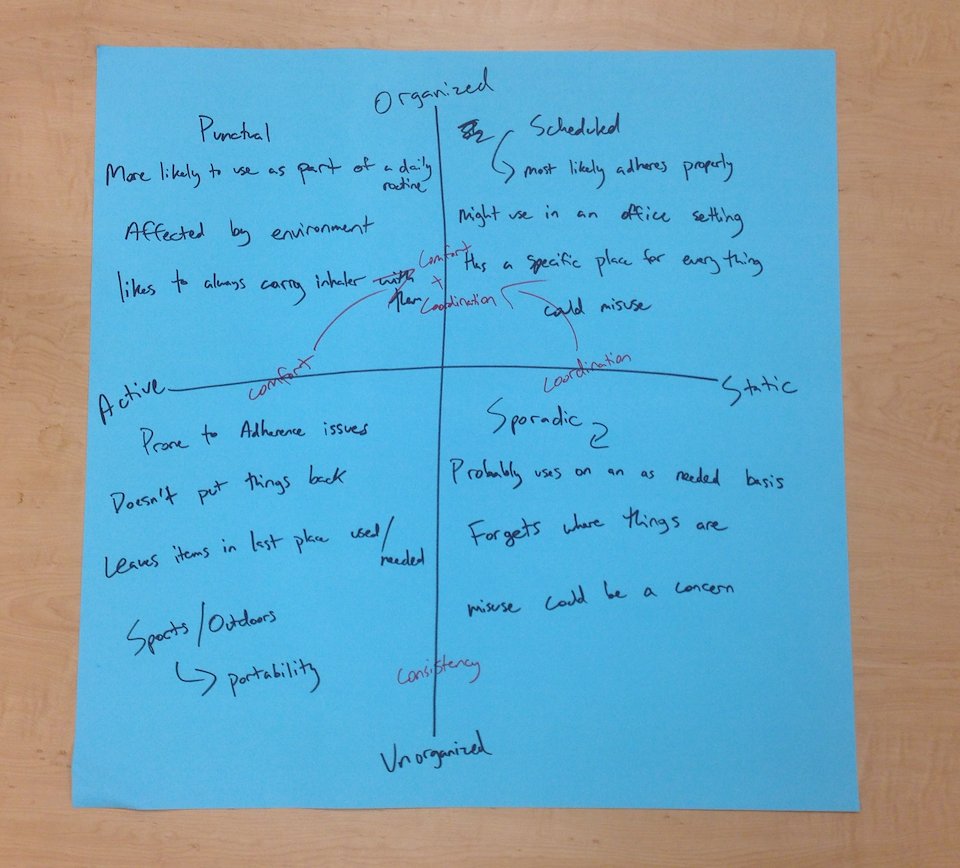 Organized
Punctual
More likely to use as part of a daily
routine
Affected by environment
likes to always carry inhaler with
them
Scheduled
most likely adheres properly
Might use in an office setting
Has a specific place for everything
could misuse
Comfort
+
Coordination
Comfort
Coordination
Active
Static
Prone to Adherence issues
Doesn't put things back
Leaves items in last place used/
needed
Sports/Outdoors
portability
Sporadic
Probably uses on an as needed basis
Forgets where things are
misuse could be a concern
Consistency
Unorganized